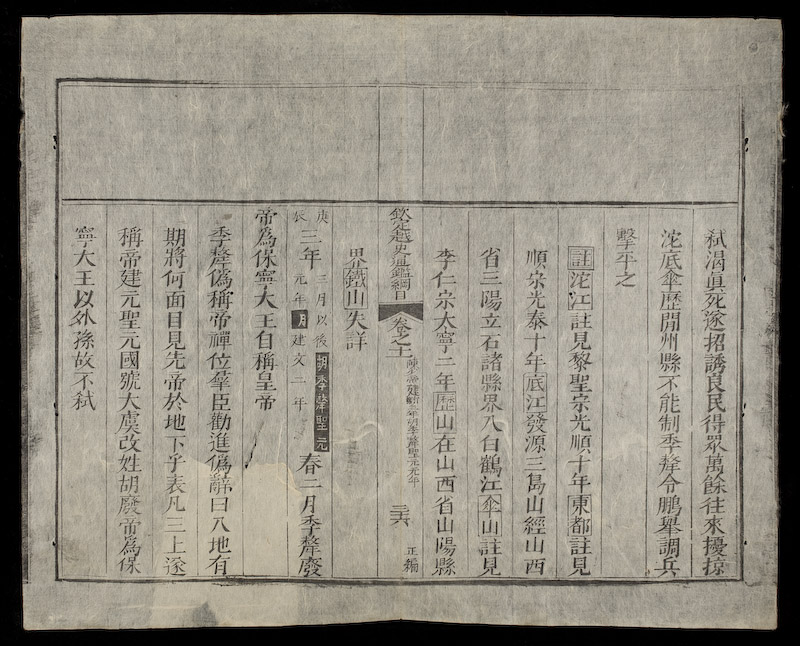 弑渴眞死遂招誘良民得眾萬餘往來擾掠
沱底傘歷閒州縣不能制季犛令鵬舉調兵
擊平之
註沱江註見黎聖宗光順十年東都註見
順宗光泰十年底江發源三島山經山西
省三陽立石諸縣界入白鶴江傘山註見
李仁宗太寧二年歷山在山西省山陽縣
欽定越史通鑑綱目 卷之十一 陳少帝建新三年胡季犛聖元元年 三六 正編
界鐵山失詳
庚辰三年三月以後胡季犛聖元元年明建文二年春二月季犛廢
帝為保寧大王自稱皇帝
季犛偽稱帝禪位羣臣勸進偽辭曰入地有
期將何面目見先帝於地下乎表凡三上遂
稱帝建元聖元國號大虞改姓胡廢帝為保
寧大王以外孫故不弑